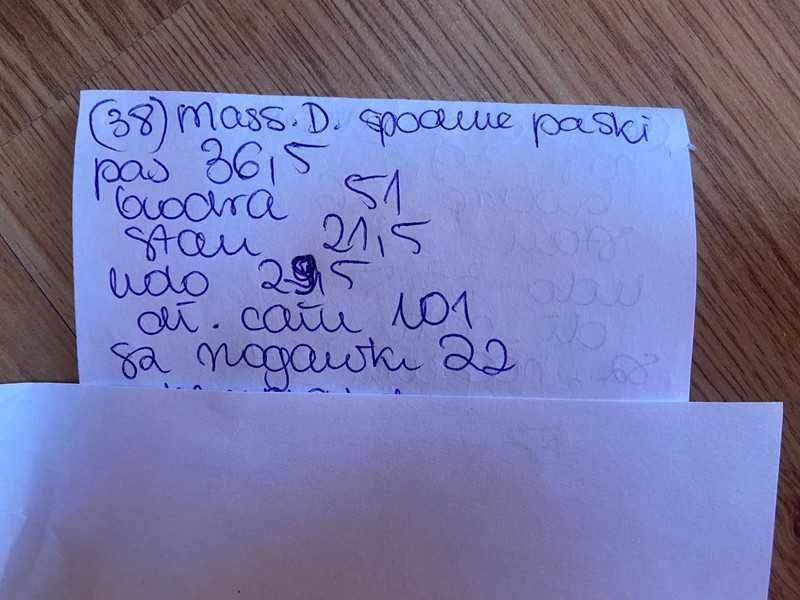 (38) Mass. D. spodnie paski
pas 36,5
biodra 51
stan 21,5
udo 29,5
dł. całk 101
sz nogawki 22